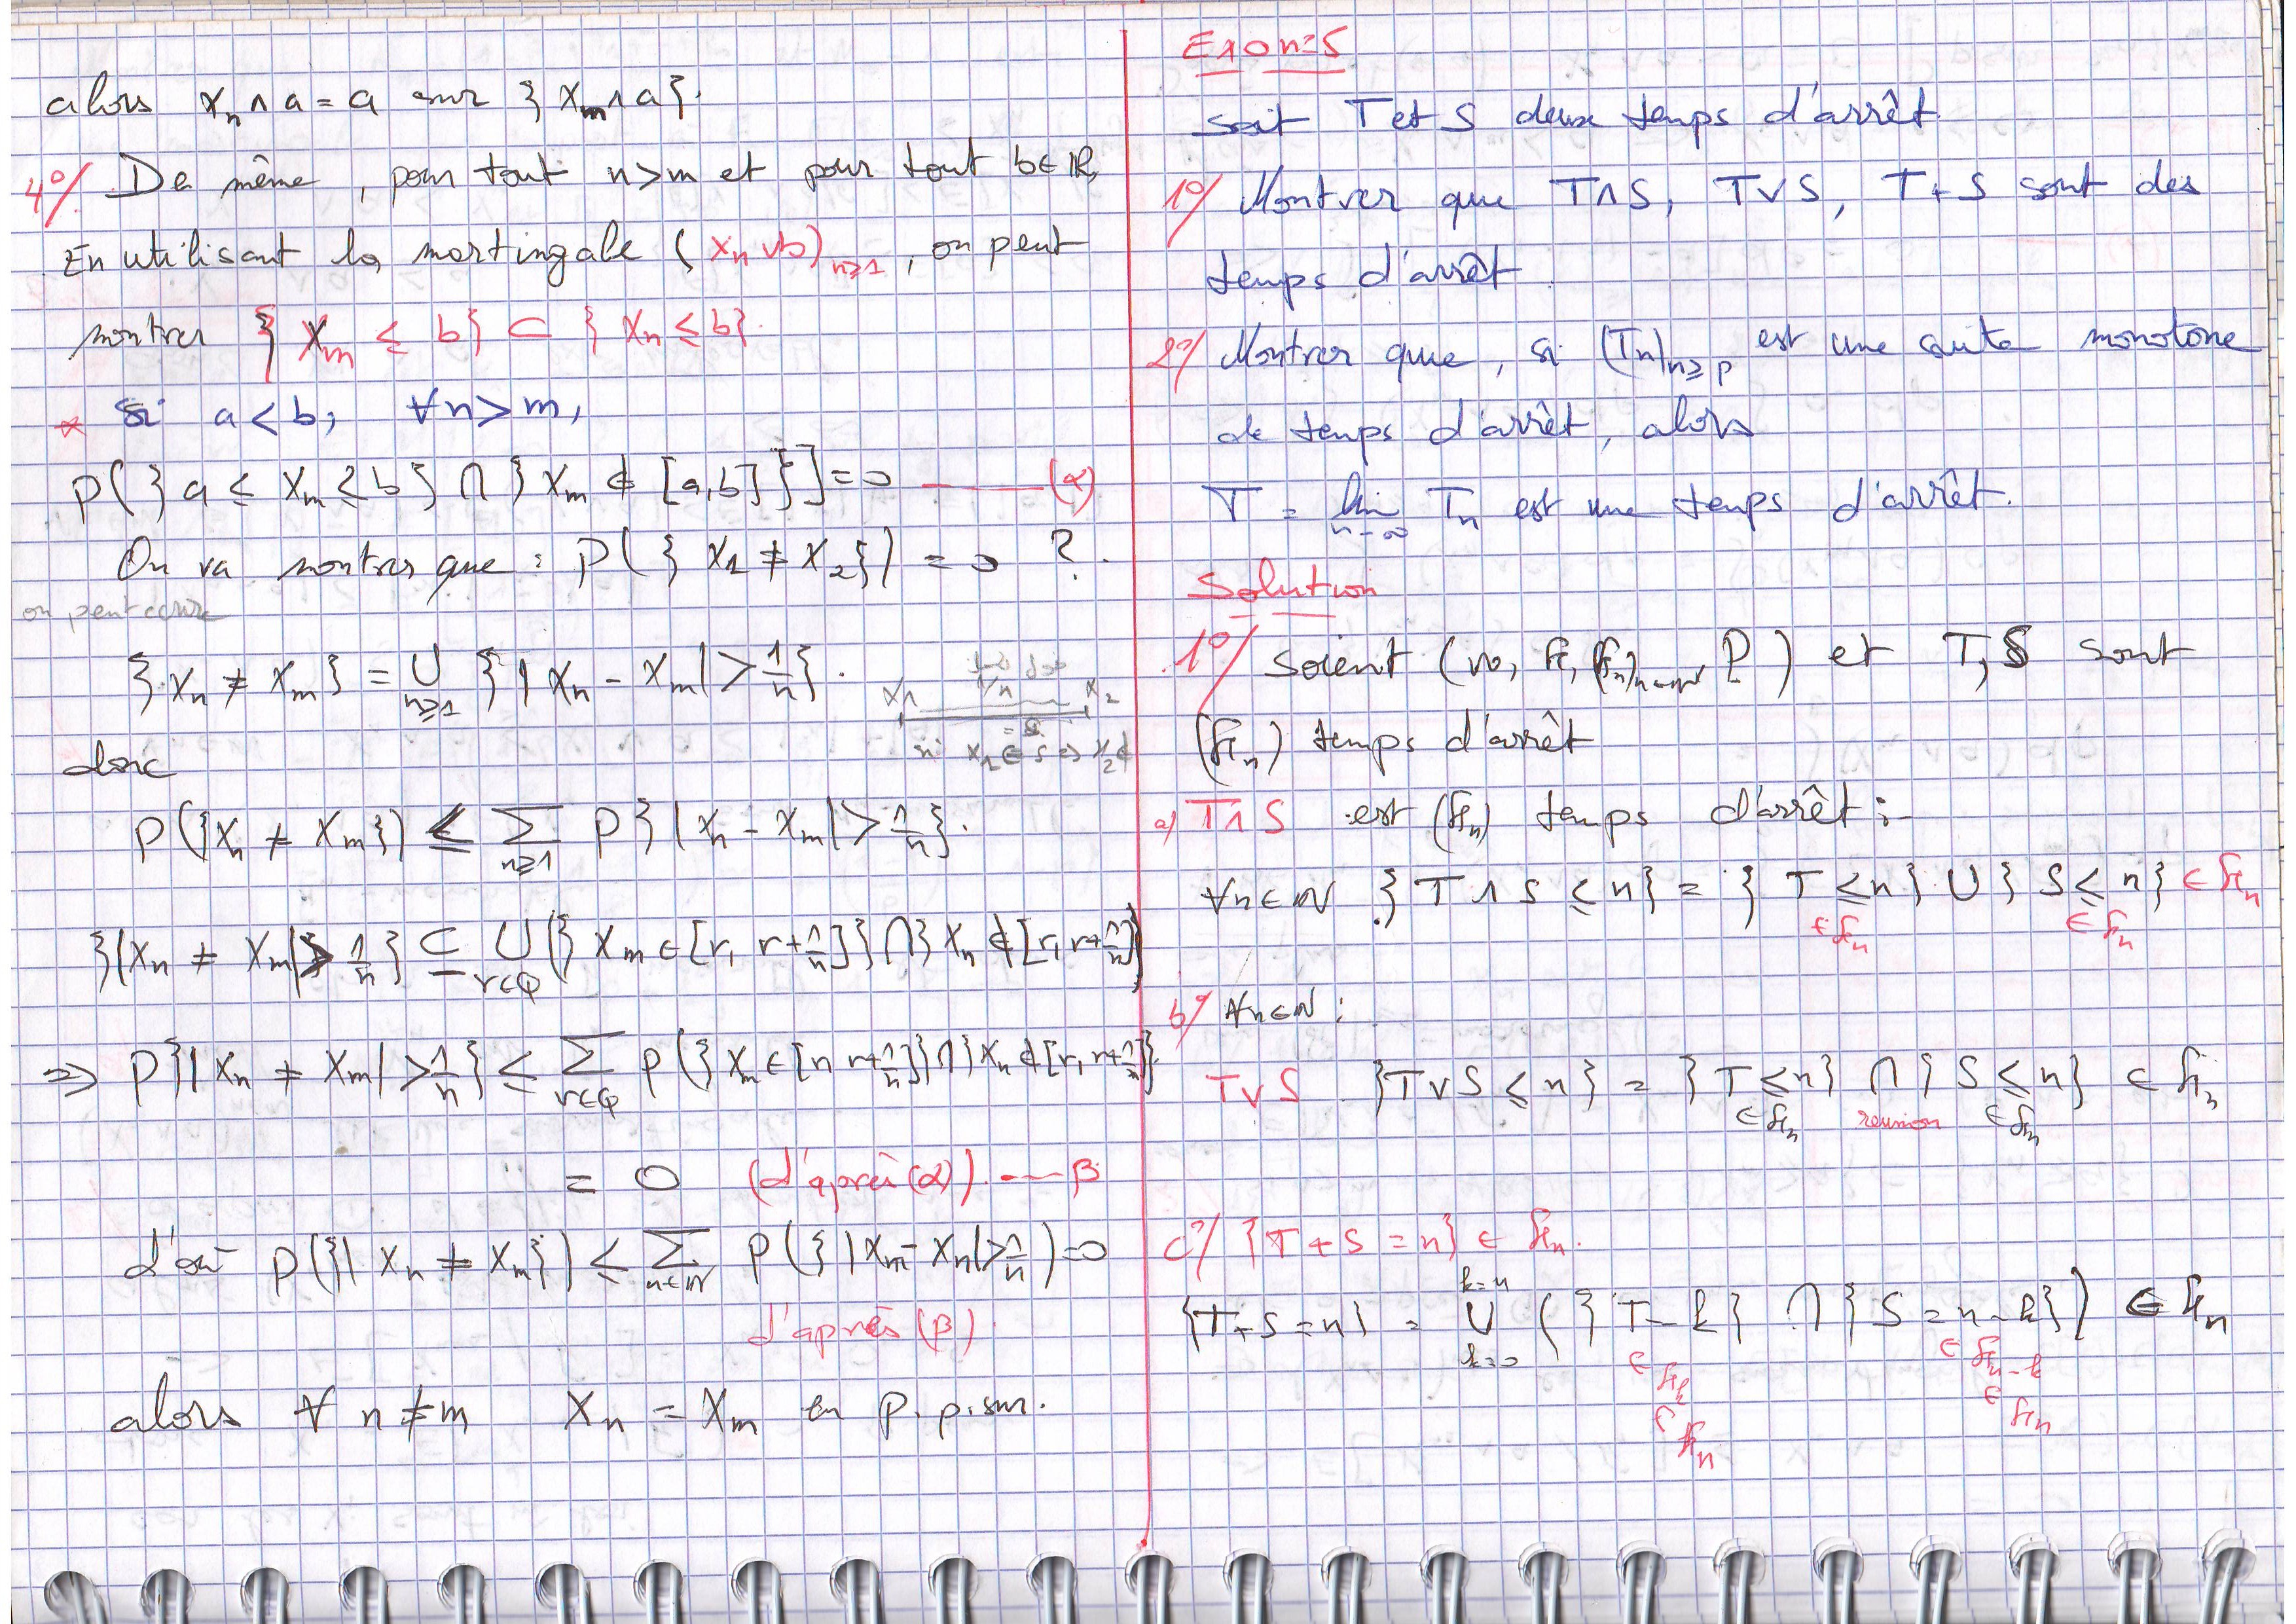 alors Xn ∧ a = a sur } Xm ∧ a}.
4°/. De même, pour tout n>m et pour tout b∈ℝ,
En utilisant la martingale (Xn ∨b)n≥1, on peut
montrer } Xm ≤ b} ⊂ } Xn ≤ b}.
* Si a < b, ∀n > m,
P(} a ≤ Xm ≤ b} ∩ } Xm ∉ [a,b]}] = 0 ——— (α)
On va montrer que : P(} X1 ≠ X2}) = 0 ?.
on peut ecrire
}.Xn ≠ Xm} = ∪n≥1 } | Xn - Xm| > 1/n}.
X1 1/n X2
si X1 ∈ S ⇒ X2 ∉
donc
P({Xn ≠ Xm}) ≤ Σn≥1 P} | Xn - Xm| > 1/n}.
}|Xn ≠ Xm| > 1/n} ⊆ ∪r∈Q (} Xm ∈ [r, r+1/n]} ∩ } Xn ∉ [r, r+1/n]}
⇒ P}| Xn ≠ Xm| > 1/n} ≤ Σr∈Q P(} Xm ∈ [r, r+1/n]} ∩ } Xn ∉ [r, r+1/n]}
= 0 (d'après (α)).---- β
d'où P(}| Xn ≠ Xm}) ≤ Σn∈ℕ P(} | Xm - Xn| > 1/n) = 0
d'après (β).
alors ∀ n ≠ m Xn = Xm en p.p.sur.
Exo n=5
soit T et S deux temps d'arrêt.
1°/ Montrer que T∧S, T∨S, T+S sont des
temps d'arrêt.
2°/ Montrer que, si (Tn)n≥p est une suite monotone
de temps d'arrêt, alors
T = lim n→∞ Tn est une temps d'arrêt.
Solution
1°/ Soient (w, ℱ, (ℱn)n∈ℕ, P) et T, S sont
(ℱn) temps d'arrêt
a) T∧S est (ℱn) temps d'arrêt :-
∀n∈ℕ } T ∧ S ≤ n} = } T ≤ n} ∪ } S ≤ n} ∈ ℱn
∈ ℱn ∈ ℱn
b°/ ∀n∈ℕ :
T∨S }T∨S ≤ n} = } T ≤ n} ∩ } S ≤ n} ∈ ℱn
∈ ℱn reunion ∈ ℱn
c°/ {T + S = n} ∈ ℱn.
{T+S = n} = ∪k=0 k=n (} T = k} ∩ } S = n-k}) ∈ ℱn
∈ ℱk ∈ ℱn-k
∈ ℱn ∈ ℱn